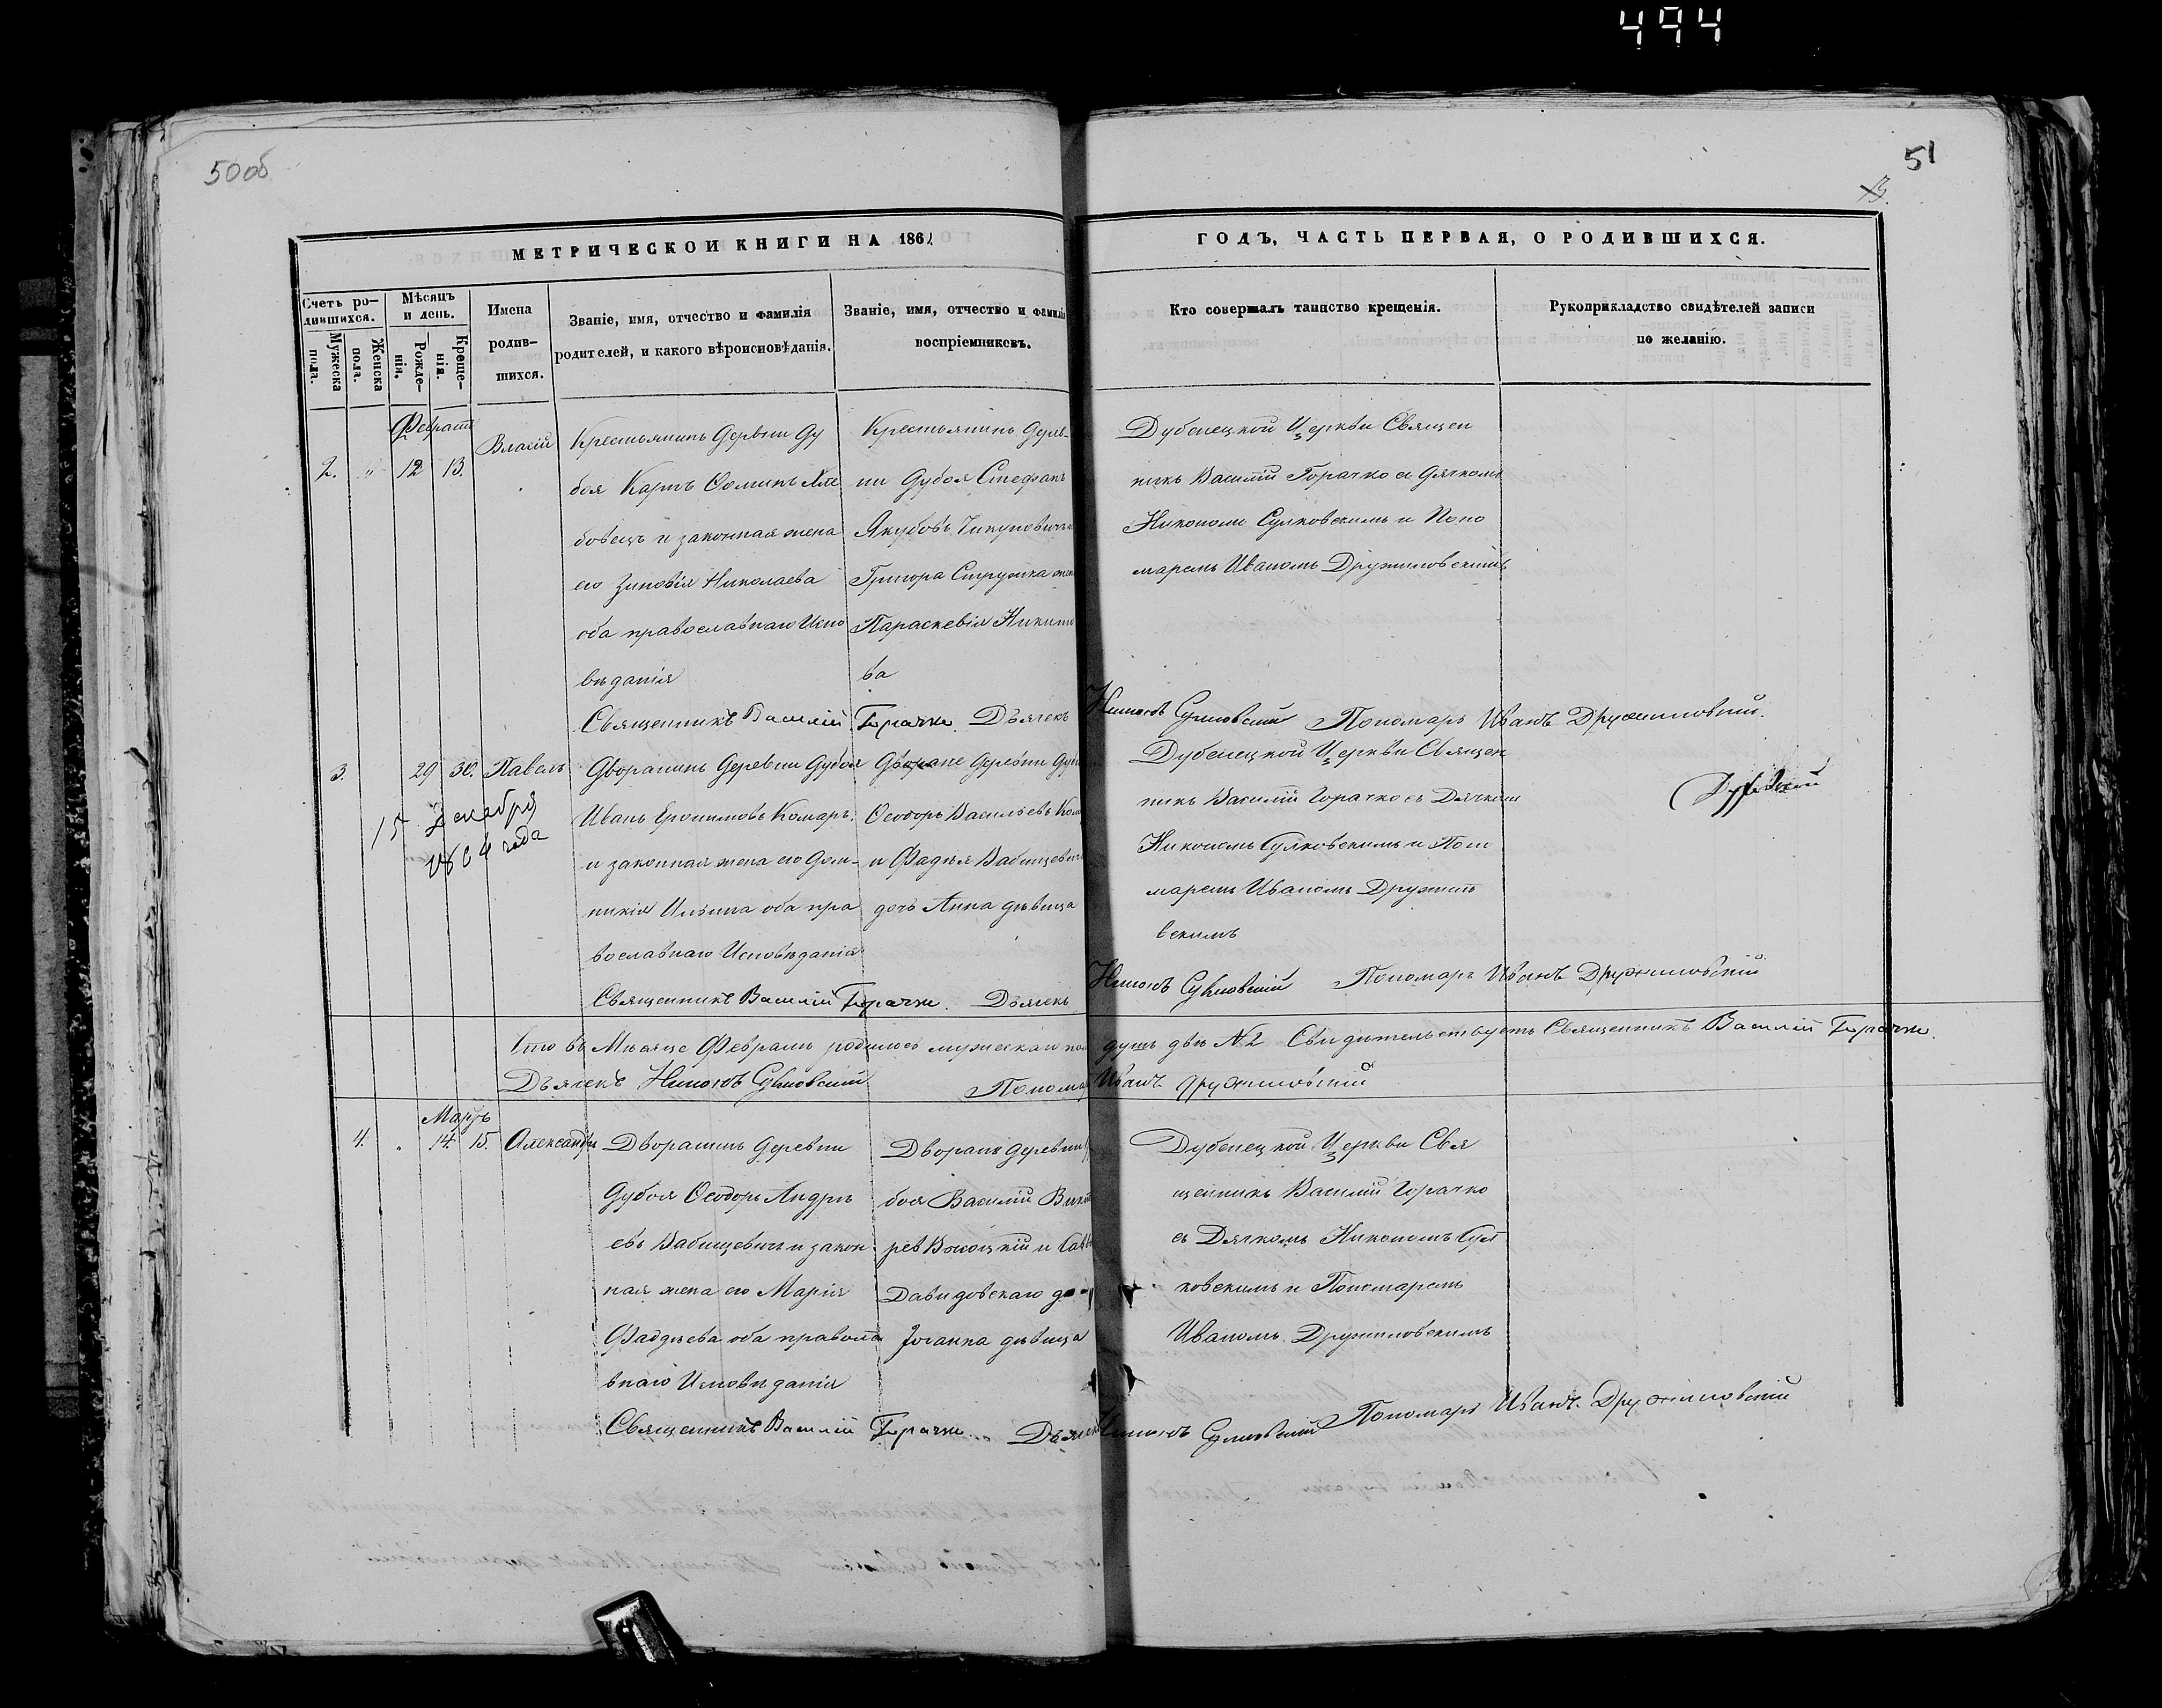 494
50об
51
МЕТРИЧЕСКОЙ КНИГИ НА 1861
ГОДЪ, ЧАСТЬ ПЕРВАЯ, О РОДИВШИХСЯ.
Счетъ ро-
дившихся.
Мужеска
пола.
Женска
пола.
Мѣсяцъ
и день.
Рожде-
нія.
Креще-
нія.
Имена
родив-
шихся.
Званіе, имя, отчество и фамилія
родителей, и какого вѣроисповѣданія.
Званіе, имя, отчество и фамилія
воспріемниковъ.
Кто совершалъ таинство крещенія.
Рукоприкладство свидѣтелей записи
по желанію.
2. " Февраля 12 13. Власій
Крестьянинъ деревни Ду
боя Карпъ Ѳоминъ
и законная жена
его Зиновія Николаева
оба православнаго Испо
вѣданія
Крестьянинъ дерев-
ни Дубоя Стефанъ
Якубовъ
Григора Стружка жена
Параскевія Никито
ва
Дубенецкой Церкви Священ
никъ Василій Горачко съ Дячкомъ
Никономъ Сулковскимъ и Поно
маремъ Иваномъ Дружиловскимъ
Священникъ Василій Горачко. Дьячекъ Никонъ Сулковскій Пономарь Иванъ Дружиловскій.
3. 29 30. Павелъ
15 Декабря
1864 года
Дворянинъ деревни Дубоя
Иванъ Еронимовъ Комаръ.
и законная жена его Дом-
никія Ильина оба пра
вославнаго Исповѣданія
Дворяне деревни Дубоя
Ѳеодоръ Васильевъ Ком
и Фадѣя Вабищевича
дочь Анна дѣвица
Дубенецкой Церкви Священ
никъ Василій Горачко съ Дячкомъ
Никономъ Сулковскимъ и Поно
маремъ Иваномъ Дружило
вскимъ
Священникъ Василій Горачко. Дьячекъ Никонъ Сулковскій Пономарь Иванъ Дружиловскій
Что въ Мѣсяце Февралѣ родилось мужескаго пола душъ двѣ N2 Свидѣтельствуетъ Священникъ Василій Горачко.
Дьячекъ Никонъ Сулковскій Пономарь Иванъ Дружиловскій
4. " Мартъ 14. 15. Александръ
Дворянинъ деревни
Дубоя Ѳеодоръ Андрѣ
евъ Вабищевичъ и закон
ная жена его Марія
Фадѣева оба правосла
внаго Исповѣданія
Дворяне деревни Ду
боя Василій Викто
ровъ Высоцкій и Савы
Давидовскаго до
Іоганна дѣвица
Дубенецкой Церкви Свя
щенникъ Василій Горачко
съ Дячкомъ Никономъ Сул
ковскимъ и Пономаремъ
Иваномъ Дружиловскимъ
Священникъ Василій Горачко. Дьячекъ Никонъ Сулковскій Пономарь Иванъ Дружиловскій